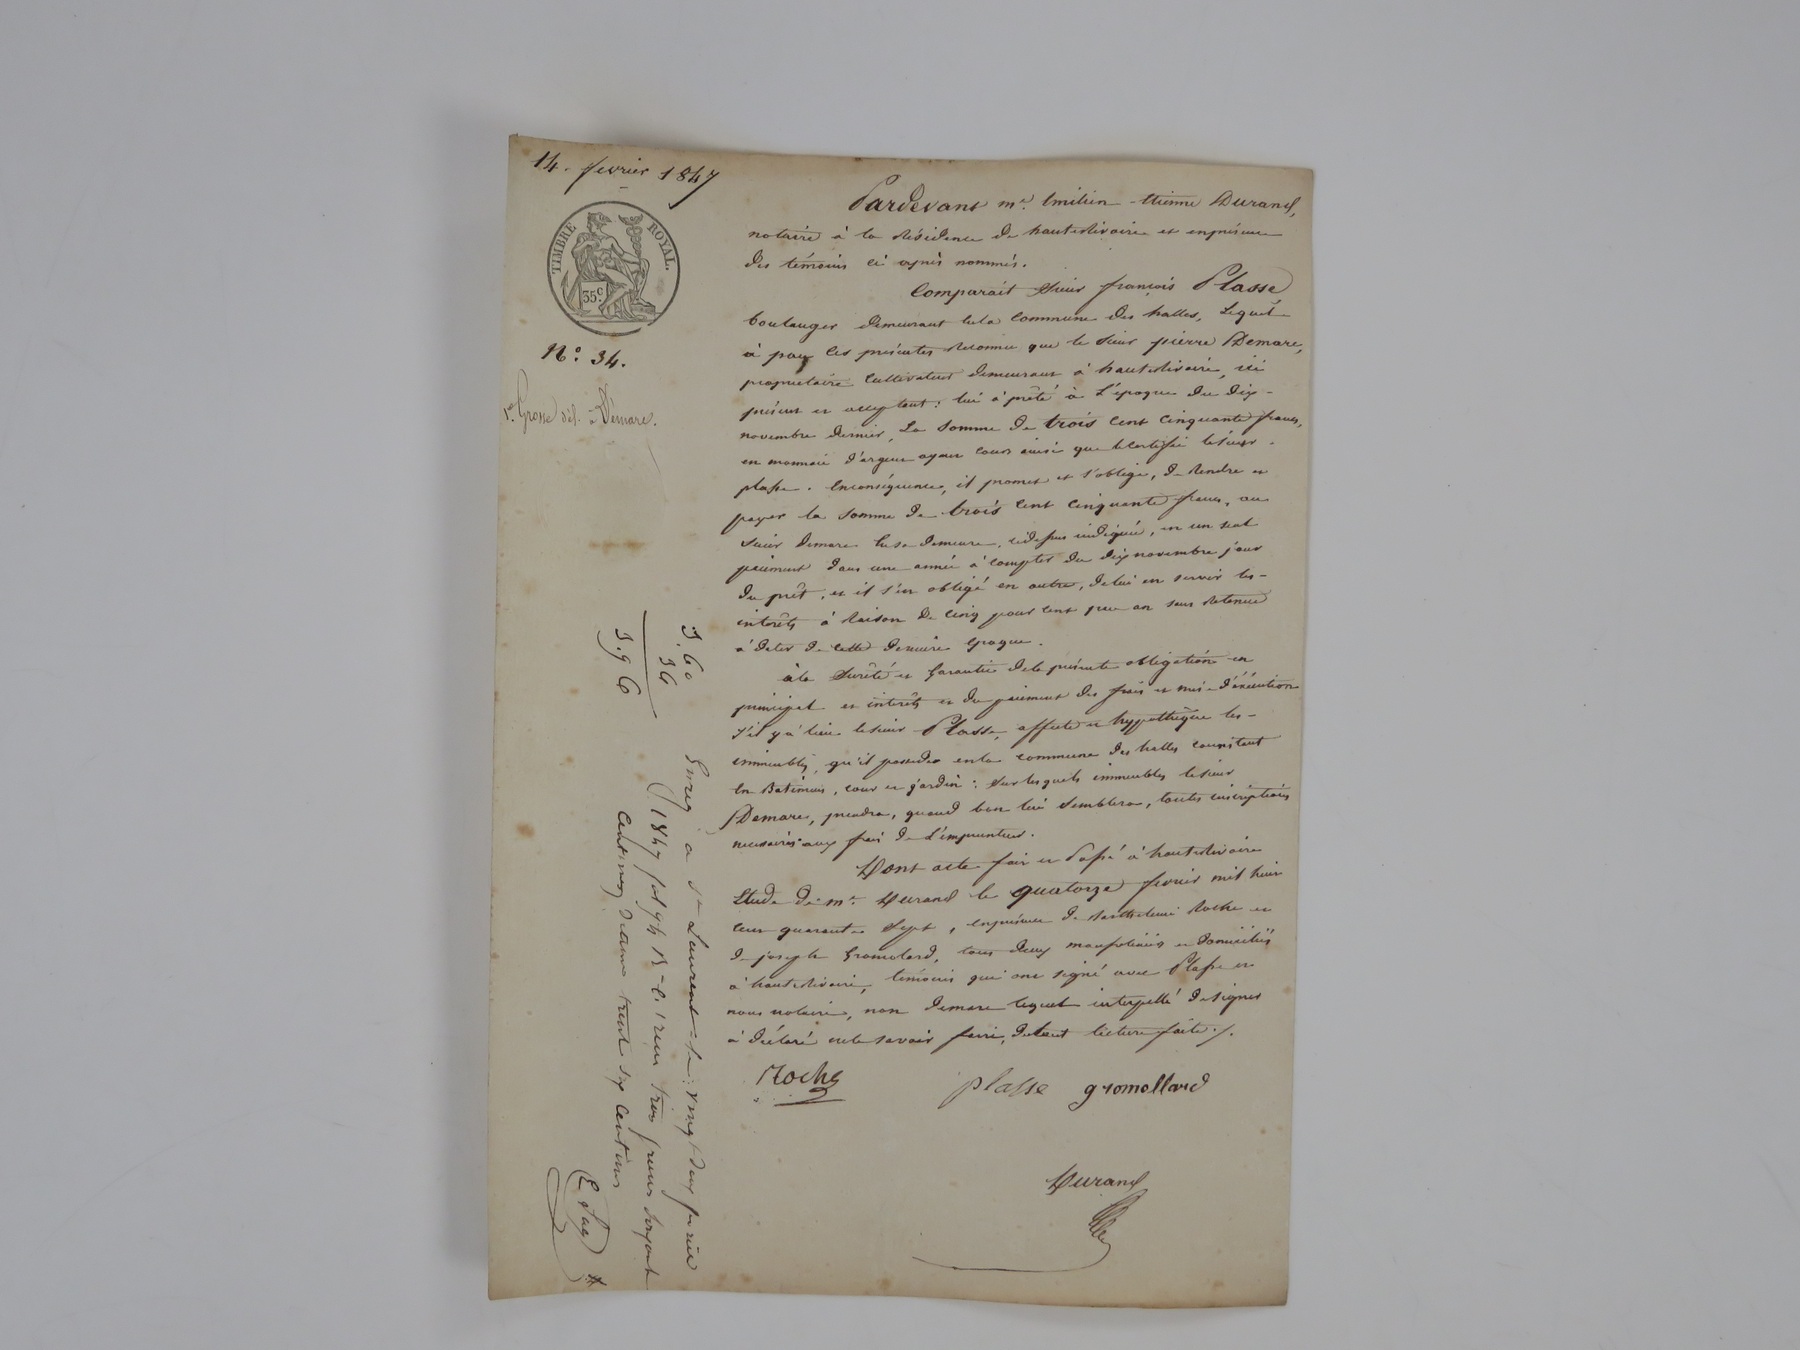 14. fevrier 1847
TIMBRE ROYAL.
35c.
N.o 34.
1re Grosse dél. à Démare.
Pardevant me. Emilien Etienne Durand,
notaire à la Résidence de hauterivoire et enprésence
des témoins ci après nommés.
Comparait Sieur françois Plasse
boulanger demeurant enla commune des halles, Lequel
à par ces presentes Reconnu que le Sieur pierre Demare,
proprietaire cultivateur demeurant à hauterivoire, ici
présent et acceptant : lui à prêté à L'époque du dix
novembre dernier, La Somme de trois cent cinquante francs,
en monnaie d'argent ayant cours ainsi que le certifie lesieur
plasse. Enconséquence, il promet et s'oblige, de Rendre et
payer la Somme de trois cent cinquante francs, au
Sieur Demare en sa demeure, cidessus indiquée, en un seul
paiement dans une année à compter du dix novembre jour
du prêt, et il s'est obligé en outre, delui en servir les
intérêts à Raison de cinq pour cent par an sans Retenue
à dater de cette derniere époque.
àla Sureté et Garantie dela présente obligation en
principal et intérêts et du paiement des frais et mise d'éxécution
s'il y à lieu lesieur Plasse, affecte et hypothèque les
immeubles, qu'il possede enla commune des halles consistant
en Batimens, cour et jardin : Sur lesquels immeubles lesieur
Demare, prendra, quand bon lui Semblera, toutes inscriptions
necessaires aux frais de L'emprunteur.
Dont acte fait et Passé à hauterivoire
Etude de me. Durand le quatorze fevrier mil huit
cent quarante Sept, enprésence de Barthelemi Roche et
de joseph Gromolard, tous deux domiciliés
à hauterivoire, témoins qui ont signé avec Plasse et
nous notaire, non Demare lequel interpellé designer
à déclaré nele savoir faire, detout lecture faite ./.
Roche
plasse gromollard
Durand
3. 60
36
3. 96
Enreg. a St Laurent le vingt deux fevrier
1847 fol 94 Reçu trois francs soixante
centimes decime trente six centimes